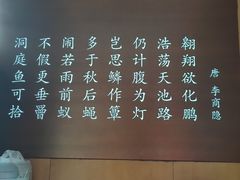 洞庭鱼可拾
不假更垂罾
闹若雨前蚁
多于秋后蝇
岂思鳞作簟
仍计腹为灯
浩荡天池路
翱翔欲化鹏
唐 李商隐